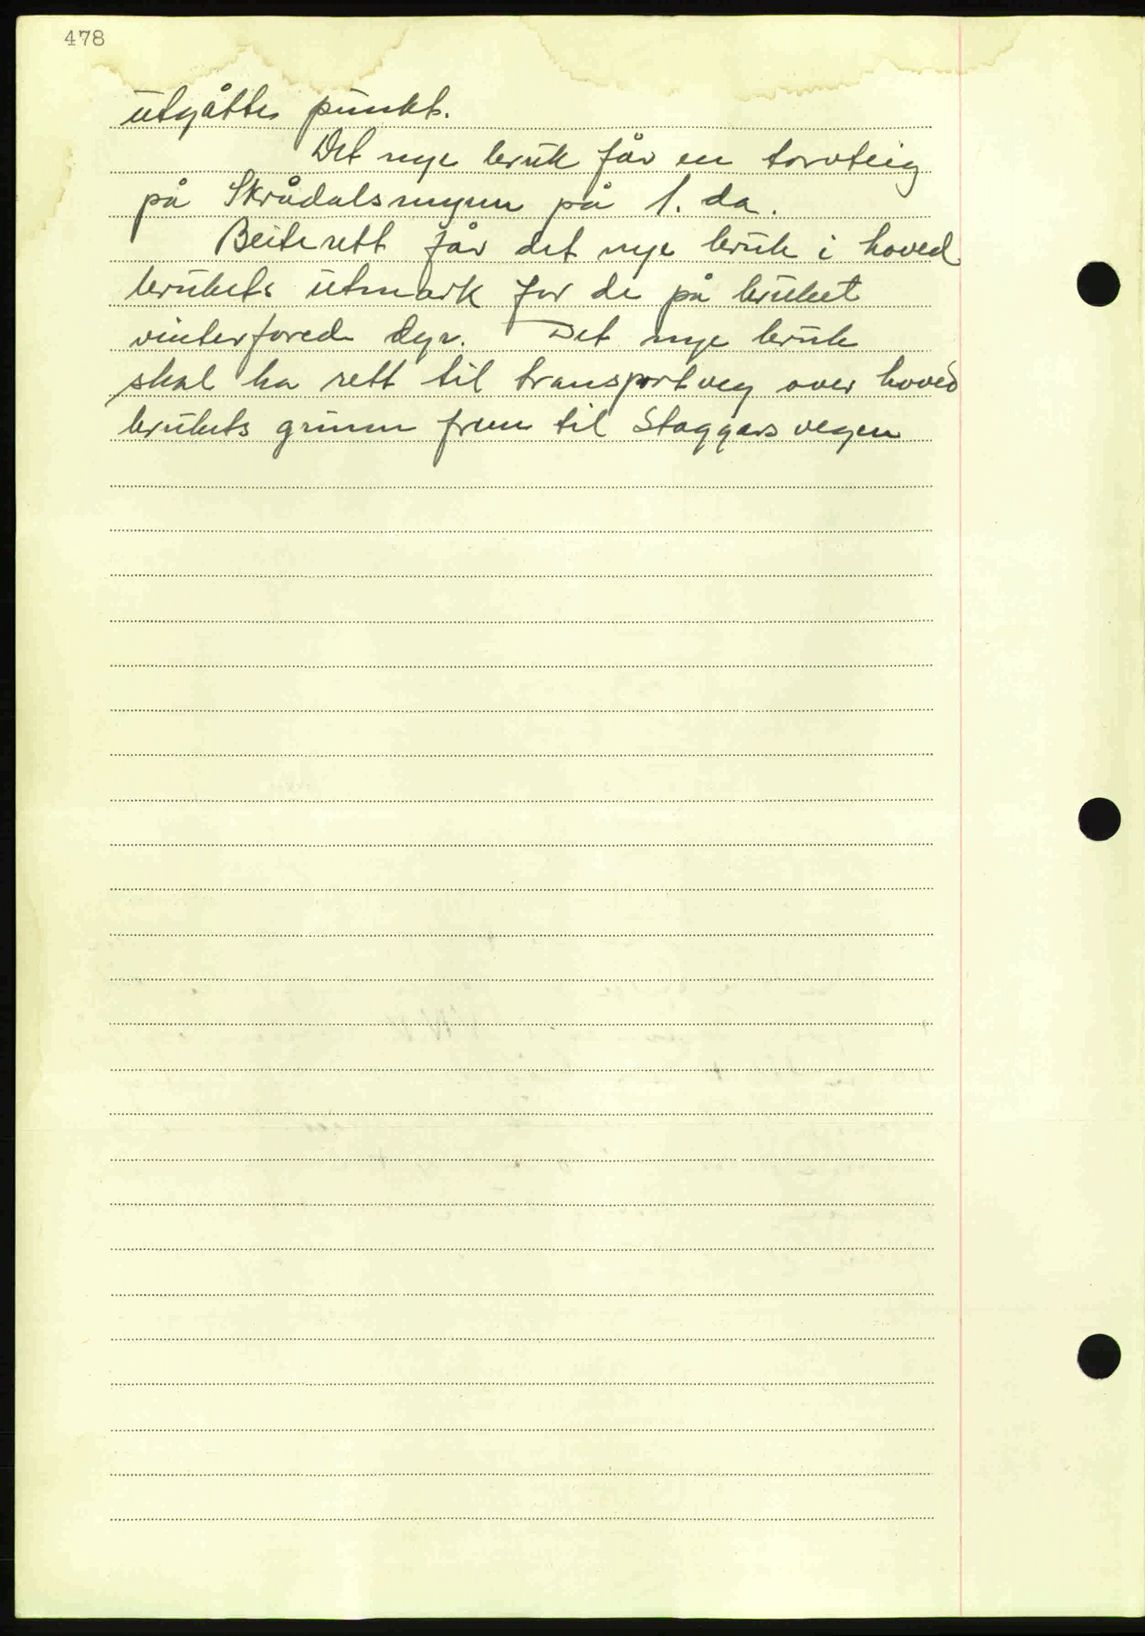 478
utgåtte punkt.
Det nye bruk får en torvteig
på Skrådalsmyren på 1. da.
Beiterett får det nye bruk i hoved
brukets utmark for de på bruket
vinterforede dyr. Det nye bruk
skal ha rett til transportveg over hoved
brukets grunn frem til Staggars vegen